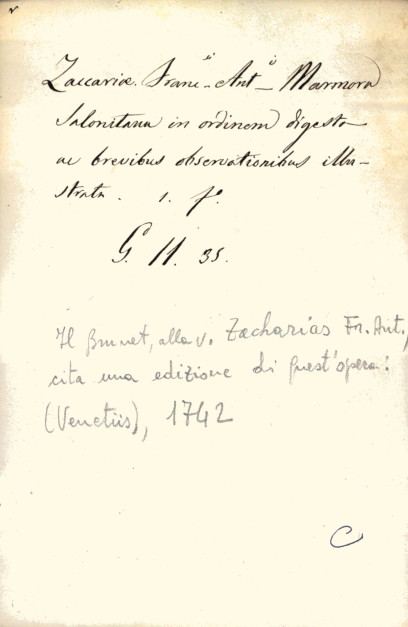 Zaccariæ Franc.ii Ant.ii Marmora
Salonitana in ordinem digesta
ac brevibus observationibus illu-
strata. 1. f.°
G. 11. 35.
Il Brunet, alla v. Zacharias Fr. Ant.,
cita una edizione di quest'opera:
(Venetiis), 1742
C